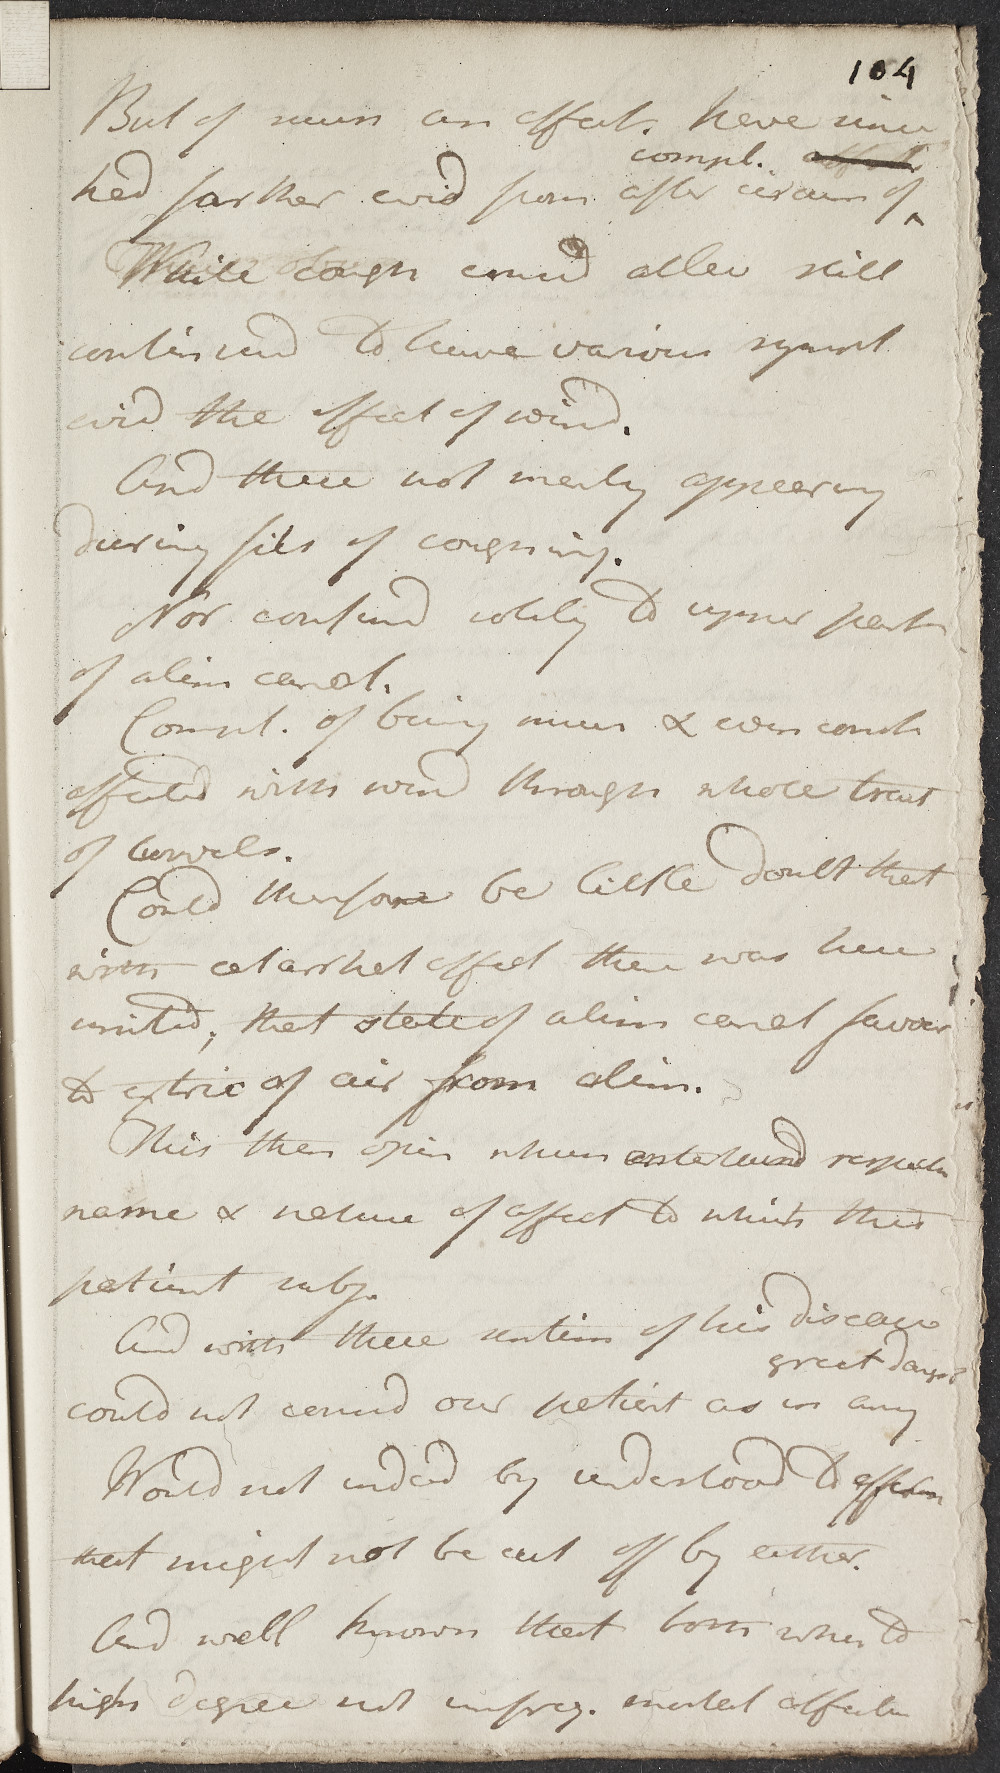 104
But of such an effect. have since
compl. affect
had farther evid from after circum of
While cough consid allev still
continued to have various sympt
evid the effect of wind.
And these not merely appearing
during fits of coughing.
Nor confined solely to upper parts
of alim canal.
Compl. of being much & even const
affected with wind through whole tract
of bowels.
Could therefore be little doubt that
with catarrhal affect there was here
united, that state of alim canal favour
to extric of air from alim.
This then opin which entertained respectin
name & nature of affect to which this
patient subj.
And with these sentim of his disease
great dang
could not consid our patient as in any
Would not indeed by understood to affirm
that might not be cut off by either.
And well known that both when to
high degree not unfreq. mortal affectn